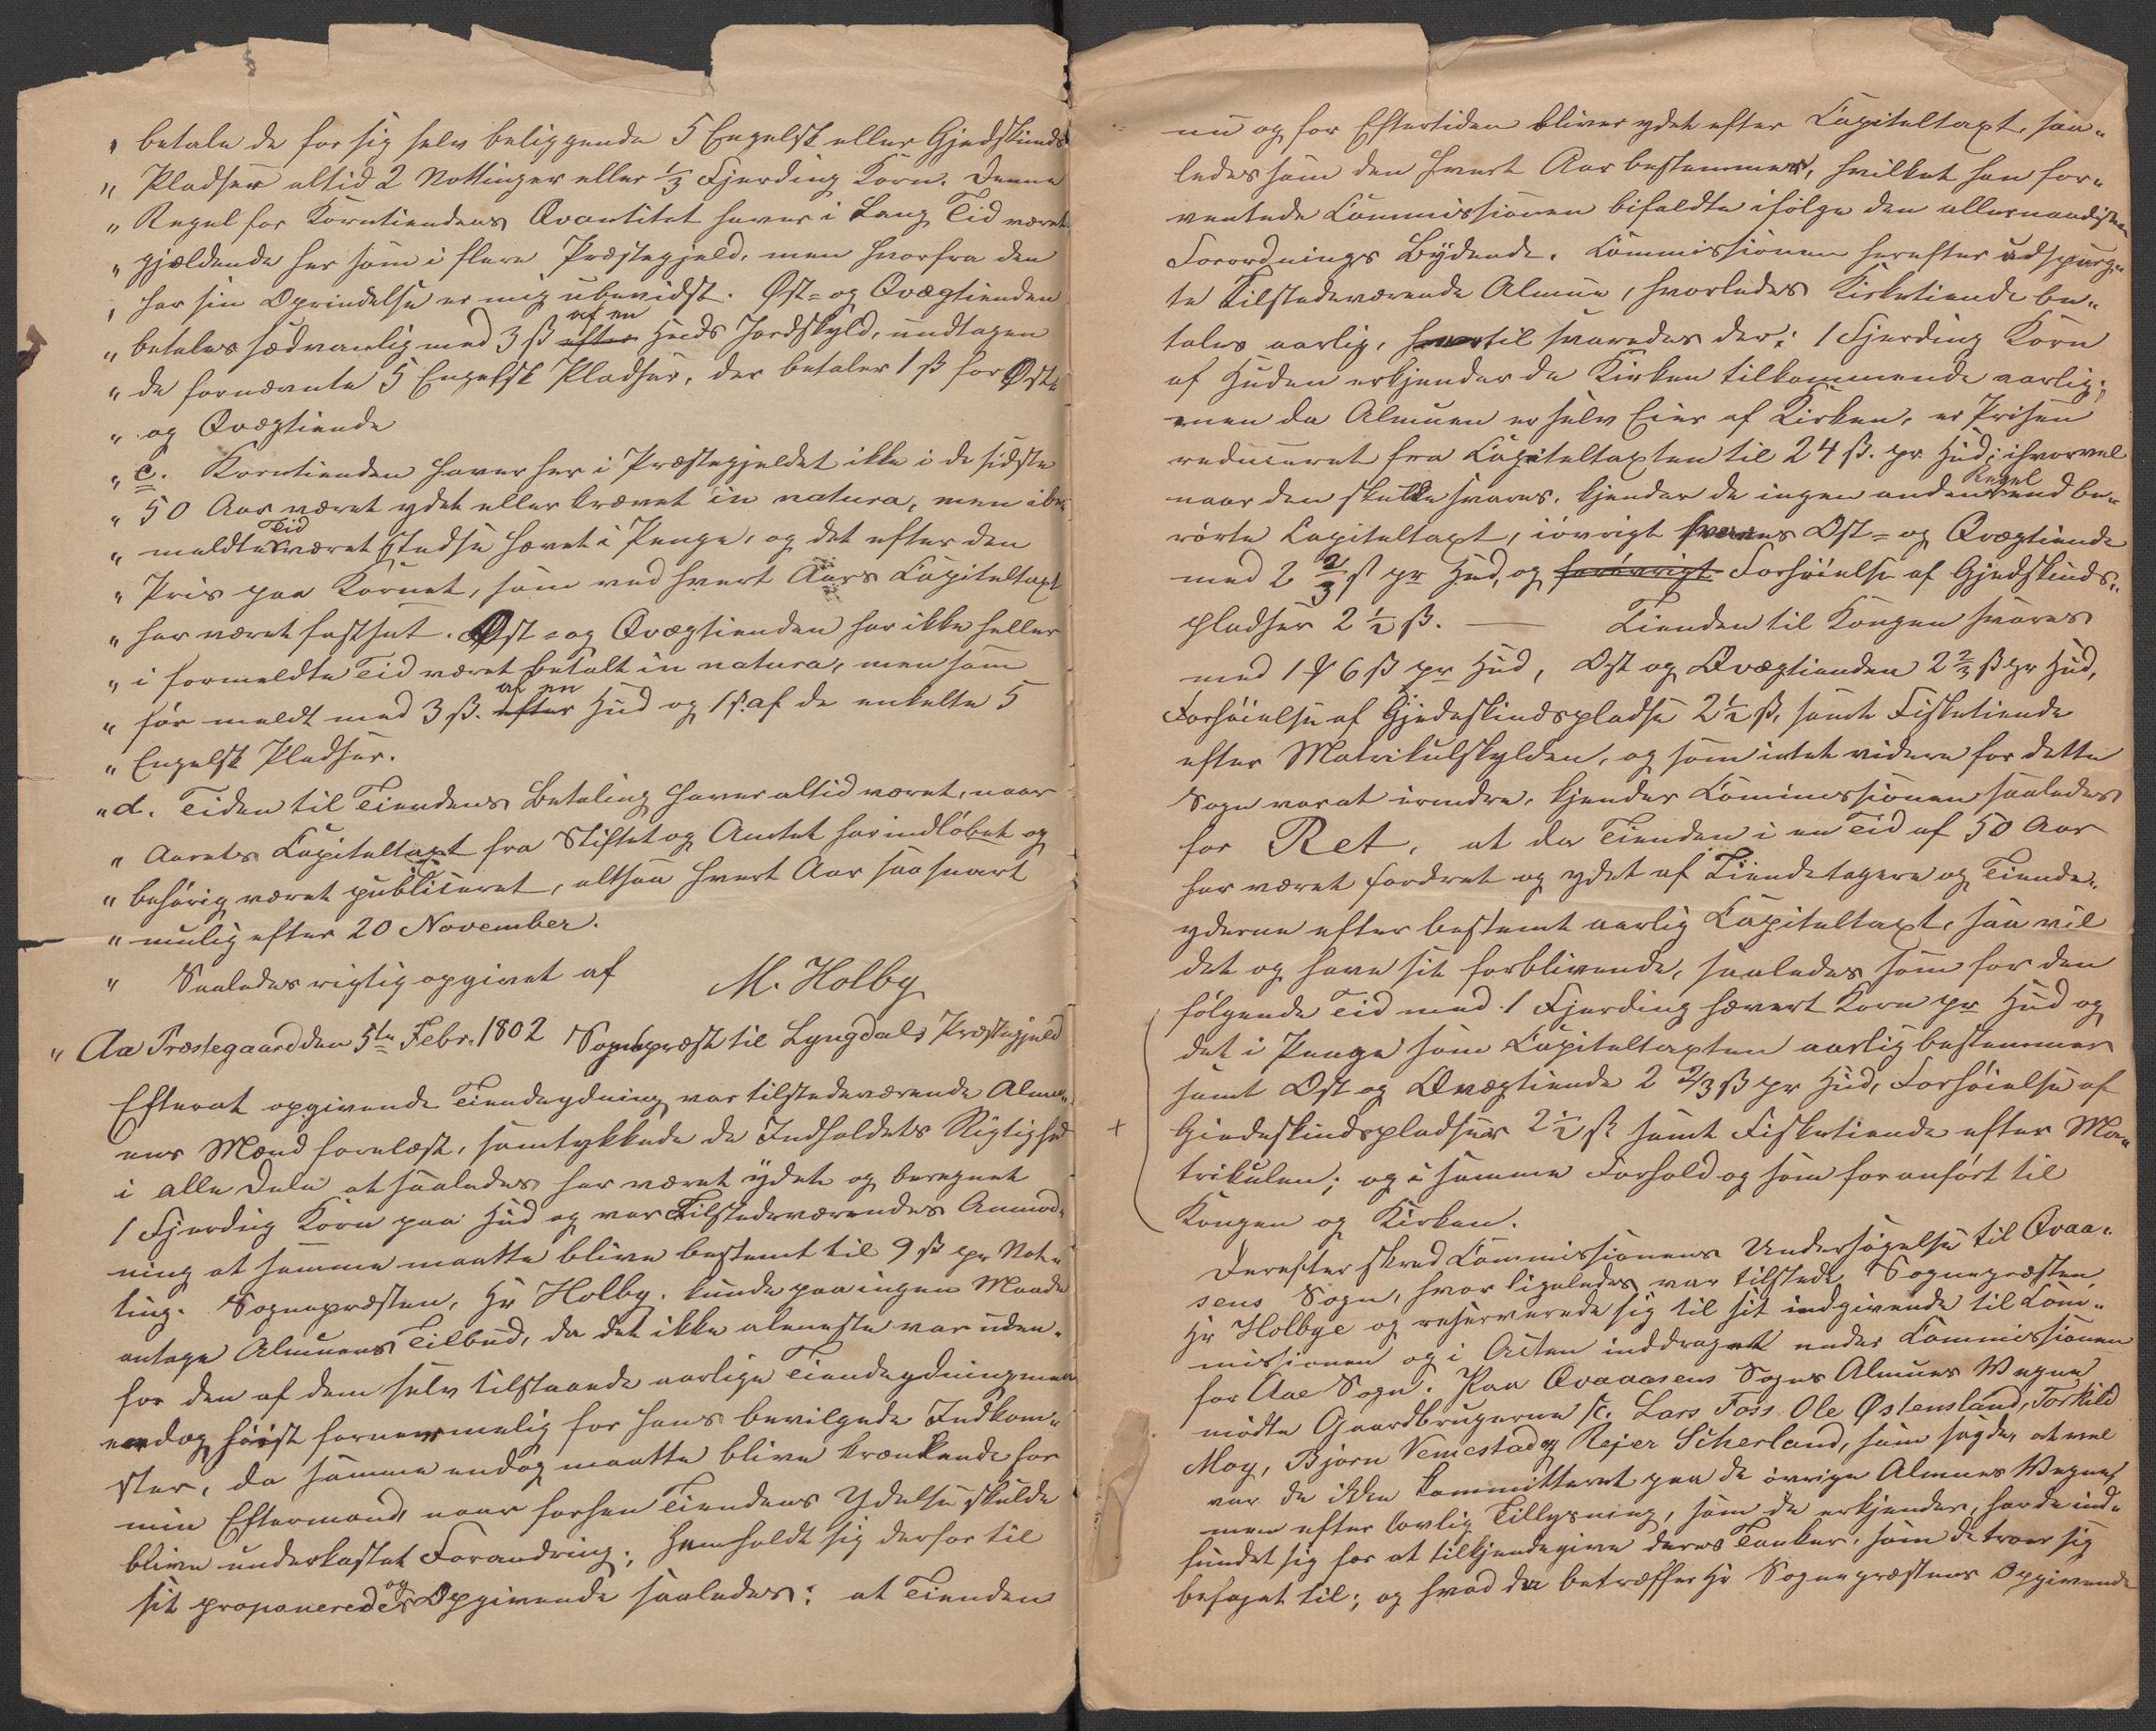 „ betale de for sig selv beliggende 5 Engelsk eller Gjedskinds
„ Pladser altid 2 Nottinger eller ⅓ Fjerding Korn. Denne
„ Regel for Korntiendens Qvantitet haver i Lang Tid været
„ gjældende her som i flere Præstegjeld, men hvorfra den
„ har sin Oprindelse er mig ubevidst. Ost- og Qvægtienden
„ betales sædvanlig med 3 ß efter af en Huds Jordskyld, undtagen
„ de fornævnte 5 Engelsk Pladser, der betaler 1 ß for Ost-
„ og Qvægtiende
„ c. Korntienden haver her i Præstegjeldet ikke i de sidste
„ 50 Aar været ydet eller krævet in natura, men i be-
„ meldte Tid været stedse hævet i Penge, og det efter den
„ Pris paa Kornet, som ved hvert Aars Capiteltaxt
„ har været fastsat. Ost- og Qvægtienden har ikke heller
„ i formeldte Tid været betalt in natura, men som
„ før meldt med 3 ß. efter af en Hud og 1 ß. af de enkelte 5
„ Engelsk Pladser.
„ d. Tiden til Tiendens Betaling haver altid været, naar
„ Aarets Capiteltaxt fra Stiftet og Amtet har indløbet og
„ behørig været publiceret, altsaa hvert Aar saa snart
„ mulig efter 20 November.
„ Saaledes rigtig opgivet af M. Holby
„ Aa Præstegaard den 5te Febr. 1802 Sognepræst til Lyngdals Præstegjeld
Efterat opgivende Tiendeydning var tilstedeværende Almu-
ens Mænd forelæst, samtykkede de Indholdets Rigtighed
i alle Dele at saaledes har været ydet og beregnet
1 Fjerding Korn paa Hud og var Tilstedeværendes Anmod-
ning at samme maatte blive bestemt til 9 ß pr Not-
ting. Sognepræsten, Hr Holby, kunde paa ingen Maade
antage Almuens Tilbud, da det ikke aleneste var uden-
for den af dem selv tilstaaede aarlige Tiendeydning men
endog høist fornærmelig for hans bevilgede Indkom-
ster, da samme endog maatte blive krænkende for
min Eftermand, naar forhen Tiendens Ydelse skulde
blive underkastet Forandring; Henholdt sig derfor til
sit proponerede og Opgivende saaledes: at Tienden
nu og for Eftertiden bliver ydet efter Capiteltaxt, saa-
ledes som den hvert Aar bestemmes, hvilket han for-
ventede Commissionen bifaldte ifølge den allernaadigste
Forordnings Bydende. Commissionen herefter udspurg-
te Tilstedeværende Almue, hvorledes Kirketiende be-
tales aarlig, hvortil svaredes der: 1 Fjerding Korn
af Huden erkjender de Kirken tilkommende aarlig;
men da Almuen er selv Eier af Kirken, er Prisen
reduceret fra Capiteltaxten til 24 ß. pr. Hud; ihvorvel
naar den skulle svares, kjender de ingen anden Regel end be-
rørte Capiteltaxt, iøvrigt svares Ost- og Qvægtiende
med 2 ⅔ ß pr Hud, og forøvrigt Forhøielse af Gjedskinds-
pladser 2 ½ ß. — Tienden til Kongen svares
med 1 ₰ 6 ß pr Hud, Ost og Qvægtienden 2 ⅔ ß pr Hud,
Forhøielse af Gjedeskindspladse 2 ½ ß, samt Fisketiende
efter Matrikulskylden, og som intet videre for dette
Sogn var at erindre, kjender Commissionen saaledes
for Ret, at da Tienden i en Tid af 50 Aar
har været fordret og ydet af Tiendetagere og Tiende-
yderne efter bestemt aarlig Capiteltaxt, saa vil
det og have sit forblivende, saaledes som for den
følgende Tid med 1 Fjerding hævert Korn pr Hud og
det i Penge som Capiteltaxten aarlig bestemmer
samt Ost og Qvægtiende 2 ⅔ ß pr Hud, Forhøielse af
+ Giedeskindspladser 2 ½ ß samt Fisketiende efter Ma-
trikulen; og i samme Forhold og som foranført til
Kongen og Kirken.
Derefter skred Commissionens Undersøgelse til Qvaa-
sens Sogn, hvor ligeledes var tilstede Sognepræsten
Hr Holbye og reserverede sig til sit indgivende til Com-
missionen og i Acten inddraget under Commissionen
for Aae Sogn. Paa Qvaaasens Sogns Almues Vegne
mødte Gaardbrugerne sc. Lars Foss Ole Østensland, Torkild
Moy, Bjørn Vemestad og Rejer Scherland, som sagde, at vel
var de ikke kommitteret paa de øvrige Almues Vegne,
men efter lovlig Tillysning, som de erkjender, har de ind-
fundet sig for at tilkjendegive deres Tanker, som de troer sig
beføjet til; og hvad der betræffer Hr Sognepræstens Opgivende